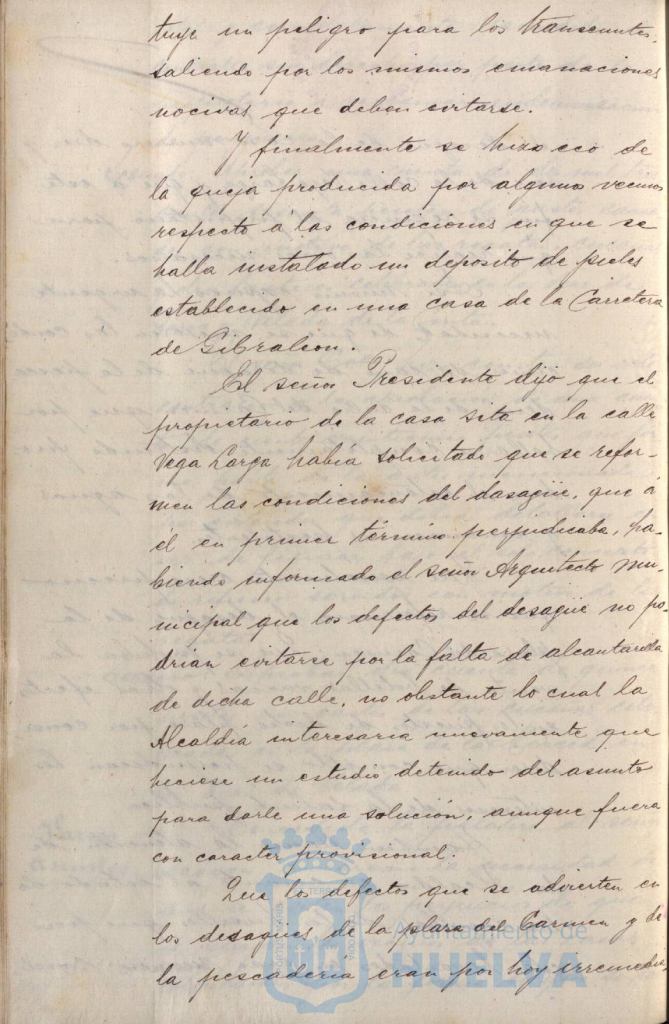 tuye un peligro para los transeuntes,
saliendo por los mismos emanaciones
nocivas que deben evitarse.
Y finalmente se hizo eco de
la queja producida por algunos vecinos
respecto á las condiciones en que se
halla instalado un depósito de pieles
establecido en una casa de la Carretera
de Gibraleon.
El señor Presidente dijo que el
propietario de la casa sita en la calle
Vega Larga habia solicitado que se refor-
men las condiciones del dasagüe, que á
él en primer término perjudicaba, ha-
biendo informado el señor Arquitecto mu-
nicipal que los defectos del desagüe no po-
drian evitarse por la falta de alcantarilla
de dicha calle, no obstante lo cual la
Alcaldía interesaría nuevamente que
hiciese un estudio detenido del asunto
para darle una solución, aunque fuera
con caracter provisional.
Que los defectos que se advierten en
los desagües de la plaza del Carmen y de
la pescadería eran por hoy irremedia-
Ayuntamiento de
HUELVA